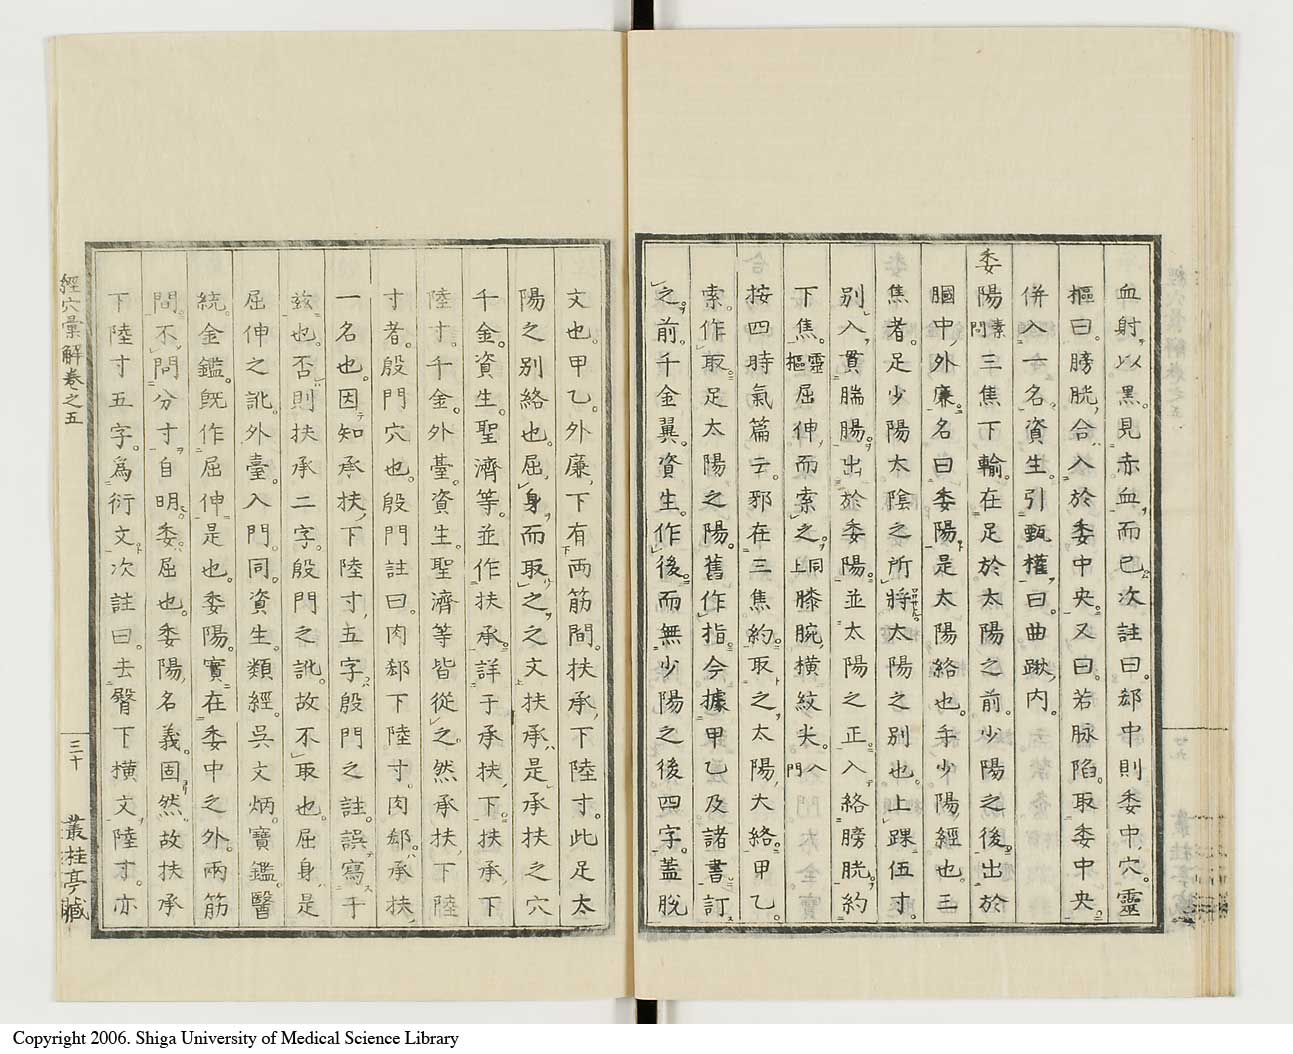 血射以黒見赤血而已次註曰郄中則委中穴靈
樞曰膀胱合入於委中央又曰若脉陷取委中央
併入一名資生引甄權曰曲䐐内
委陽素問三焦下輸在足於太陽之前少陽之後出於
膕中外廉名曰委陽是太陽絡也手少陽經也三
焦者足少陽太陰之所將太陽之別也上踝伍寸
別入貫腨腸出於委陽並太陽之正入絡膀胱約
下焦靈樞屈伸而索之同上膝腕横紋尖入門
按四時氣篇云邪在三焦約取之太陽大絡甲乙
索作取足太陽之陽舊作指今據甲乙及諸書訂
之前千金翼資生作後而無少陽之後四字蓋脱
文也甲乙外廉下有兩筋間扶承下陸寸此足太
陽之別絡也屈身而取之之文扶承是承扶之穴
千金資生聖濟等並作扶承詳于承扶下扶承下
陸寸千金外臺資生聖濟等皆從之然承扶下陸
寸者殷門穴也殷門註曰肉郄下陸寸肉郄承扶
一名也因知承扶下陸寸五字殷門之註誤寫于
玆也否則扶承二字殷門之訛故不取也屈身是
屈伸之訛外臺入門同資生類經吳文炳寶鑑醫
統金鑑旣作屈伸是也委陽實在委中之外兩筋
間不問分寸自明委屈也委陽名義固然故扶承
下陸寸五字爲衍文次註曰去臀下横文陸寸亦
經穴彙解卷之五
三十
叢桂亭藏
Copyright 2006. Shiga University of Medical Science Library